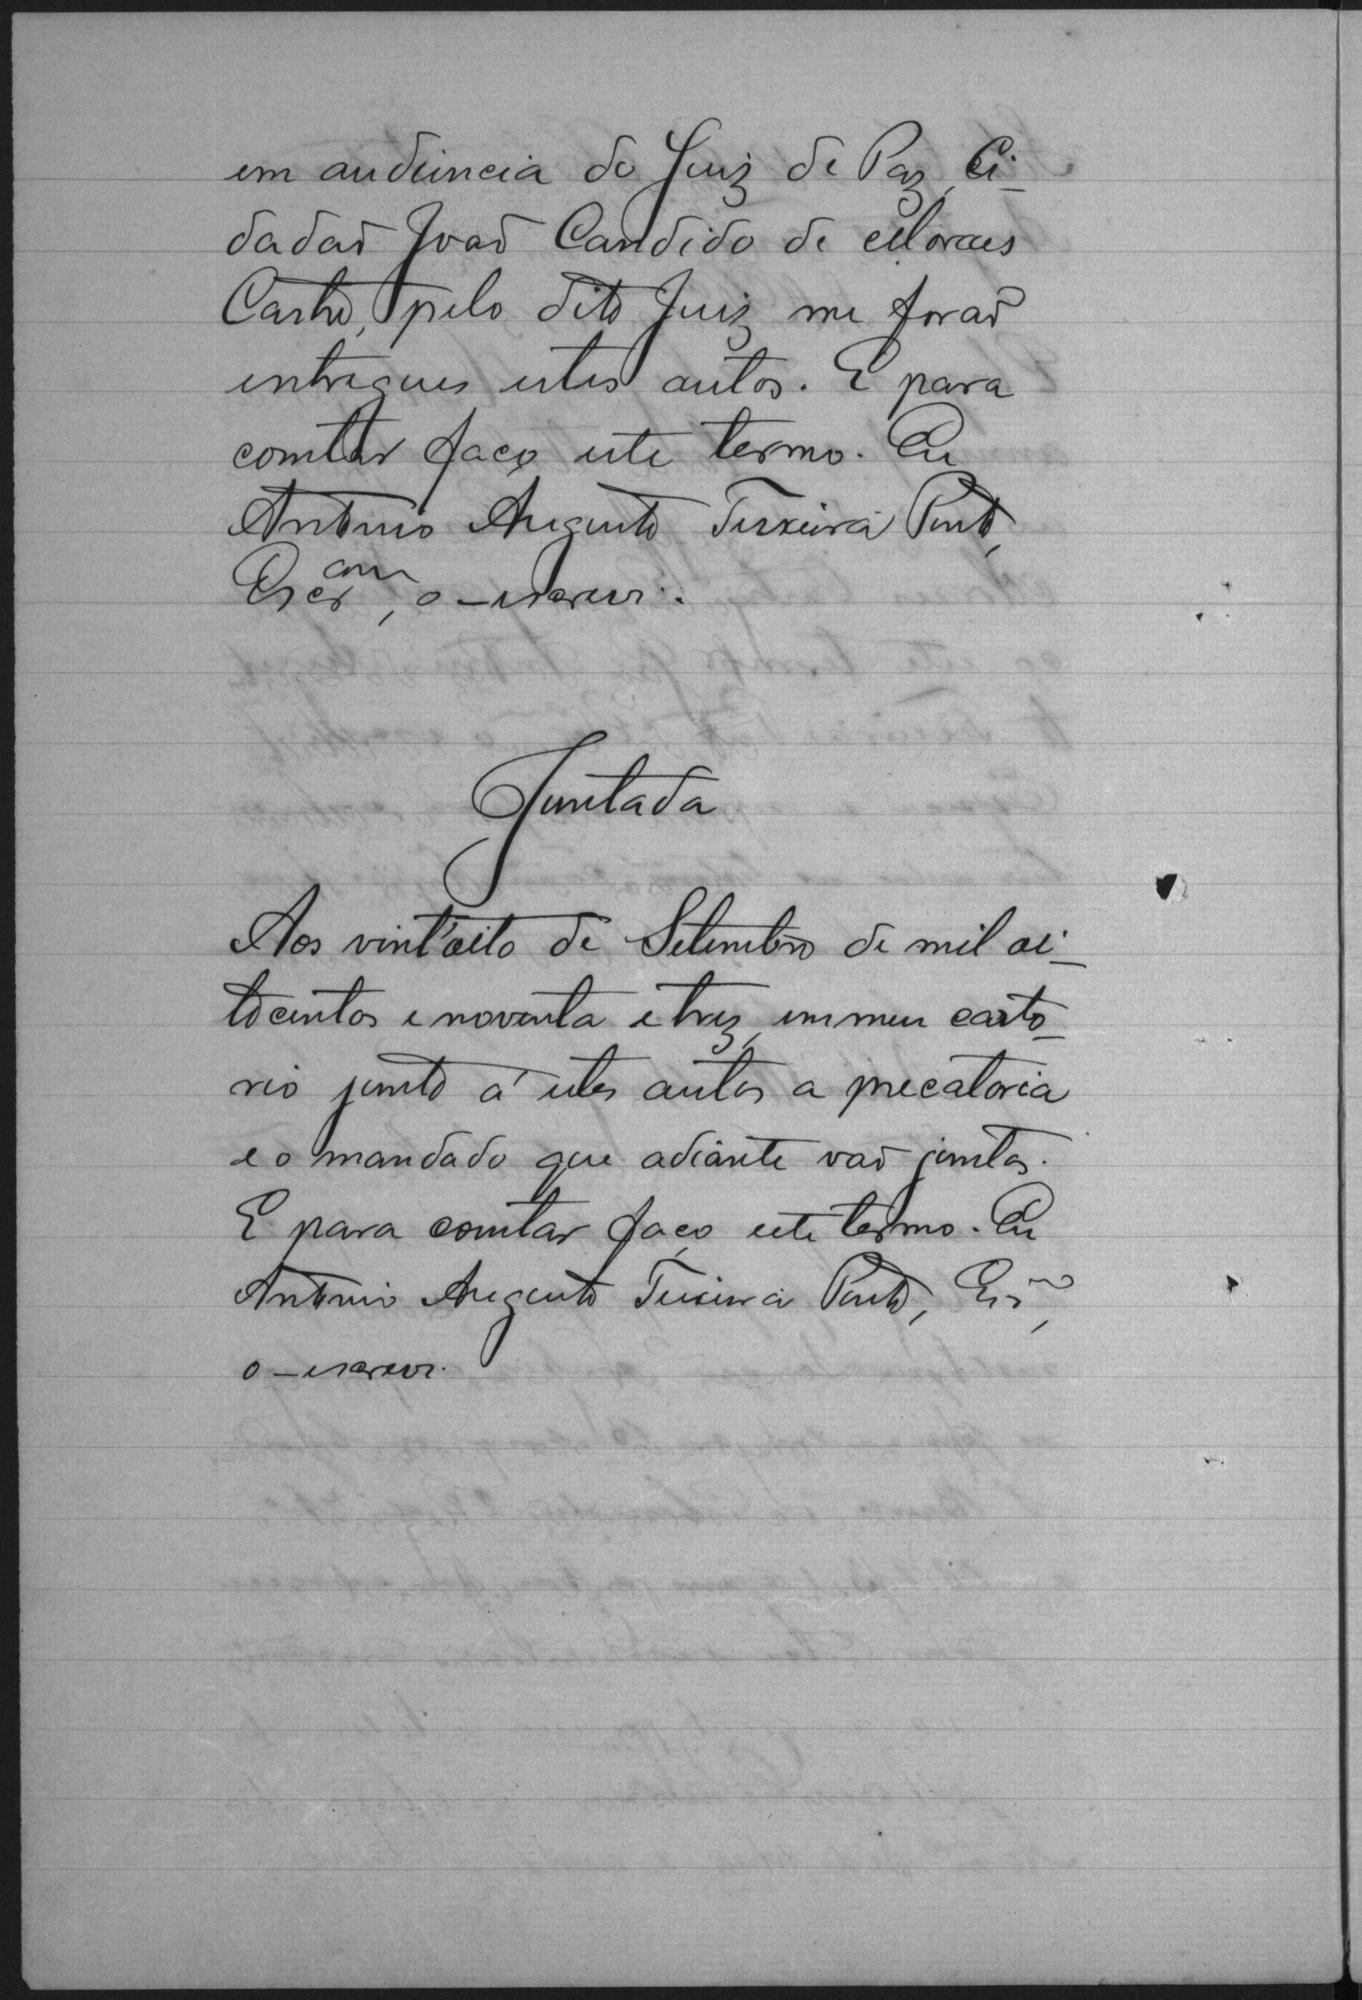 em audiencia do Juiz de Paz, Ci-
dadaõ Joaõ Candido de Moraes
Castro, pelo dito Juiz me foraõ
entregues estes autos. E para
constar faço este termo. Eu
Antonio Augusto Teixeira Pinto,
Escr.am, o-escrevi.
Juntada
Aos vint'oito de Setembro de mil oi-
tocentos e noventa e trez, em meu carto-
rio junto á estes autos a precatoria
e o mandado que adiante vaõ juntos.
E para constar faço este termo. Eu
Antonio Augusto Teixeira Pinto, Esm,
o-escrevi.